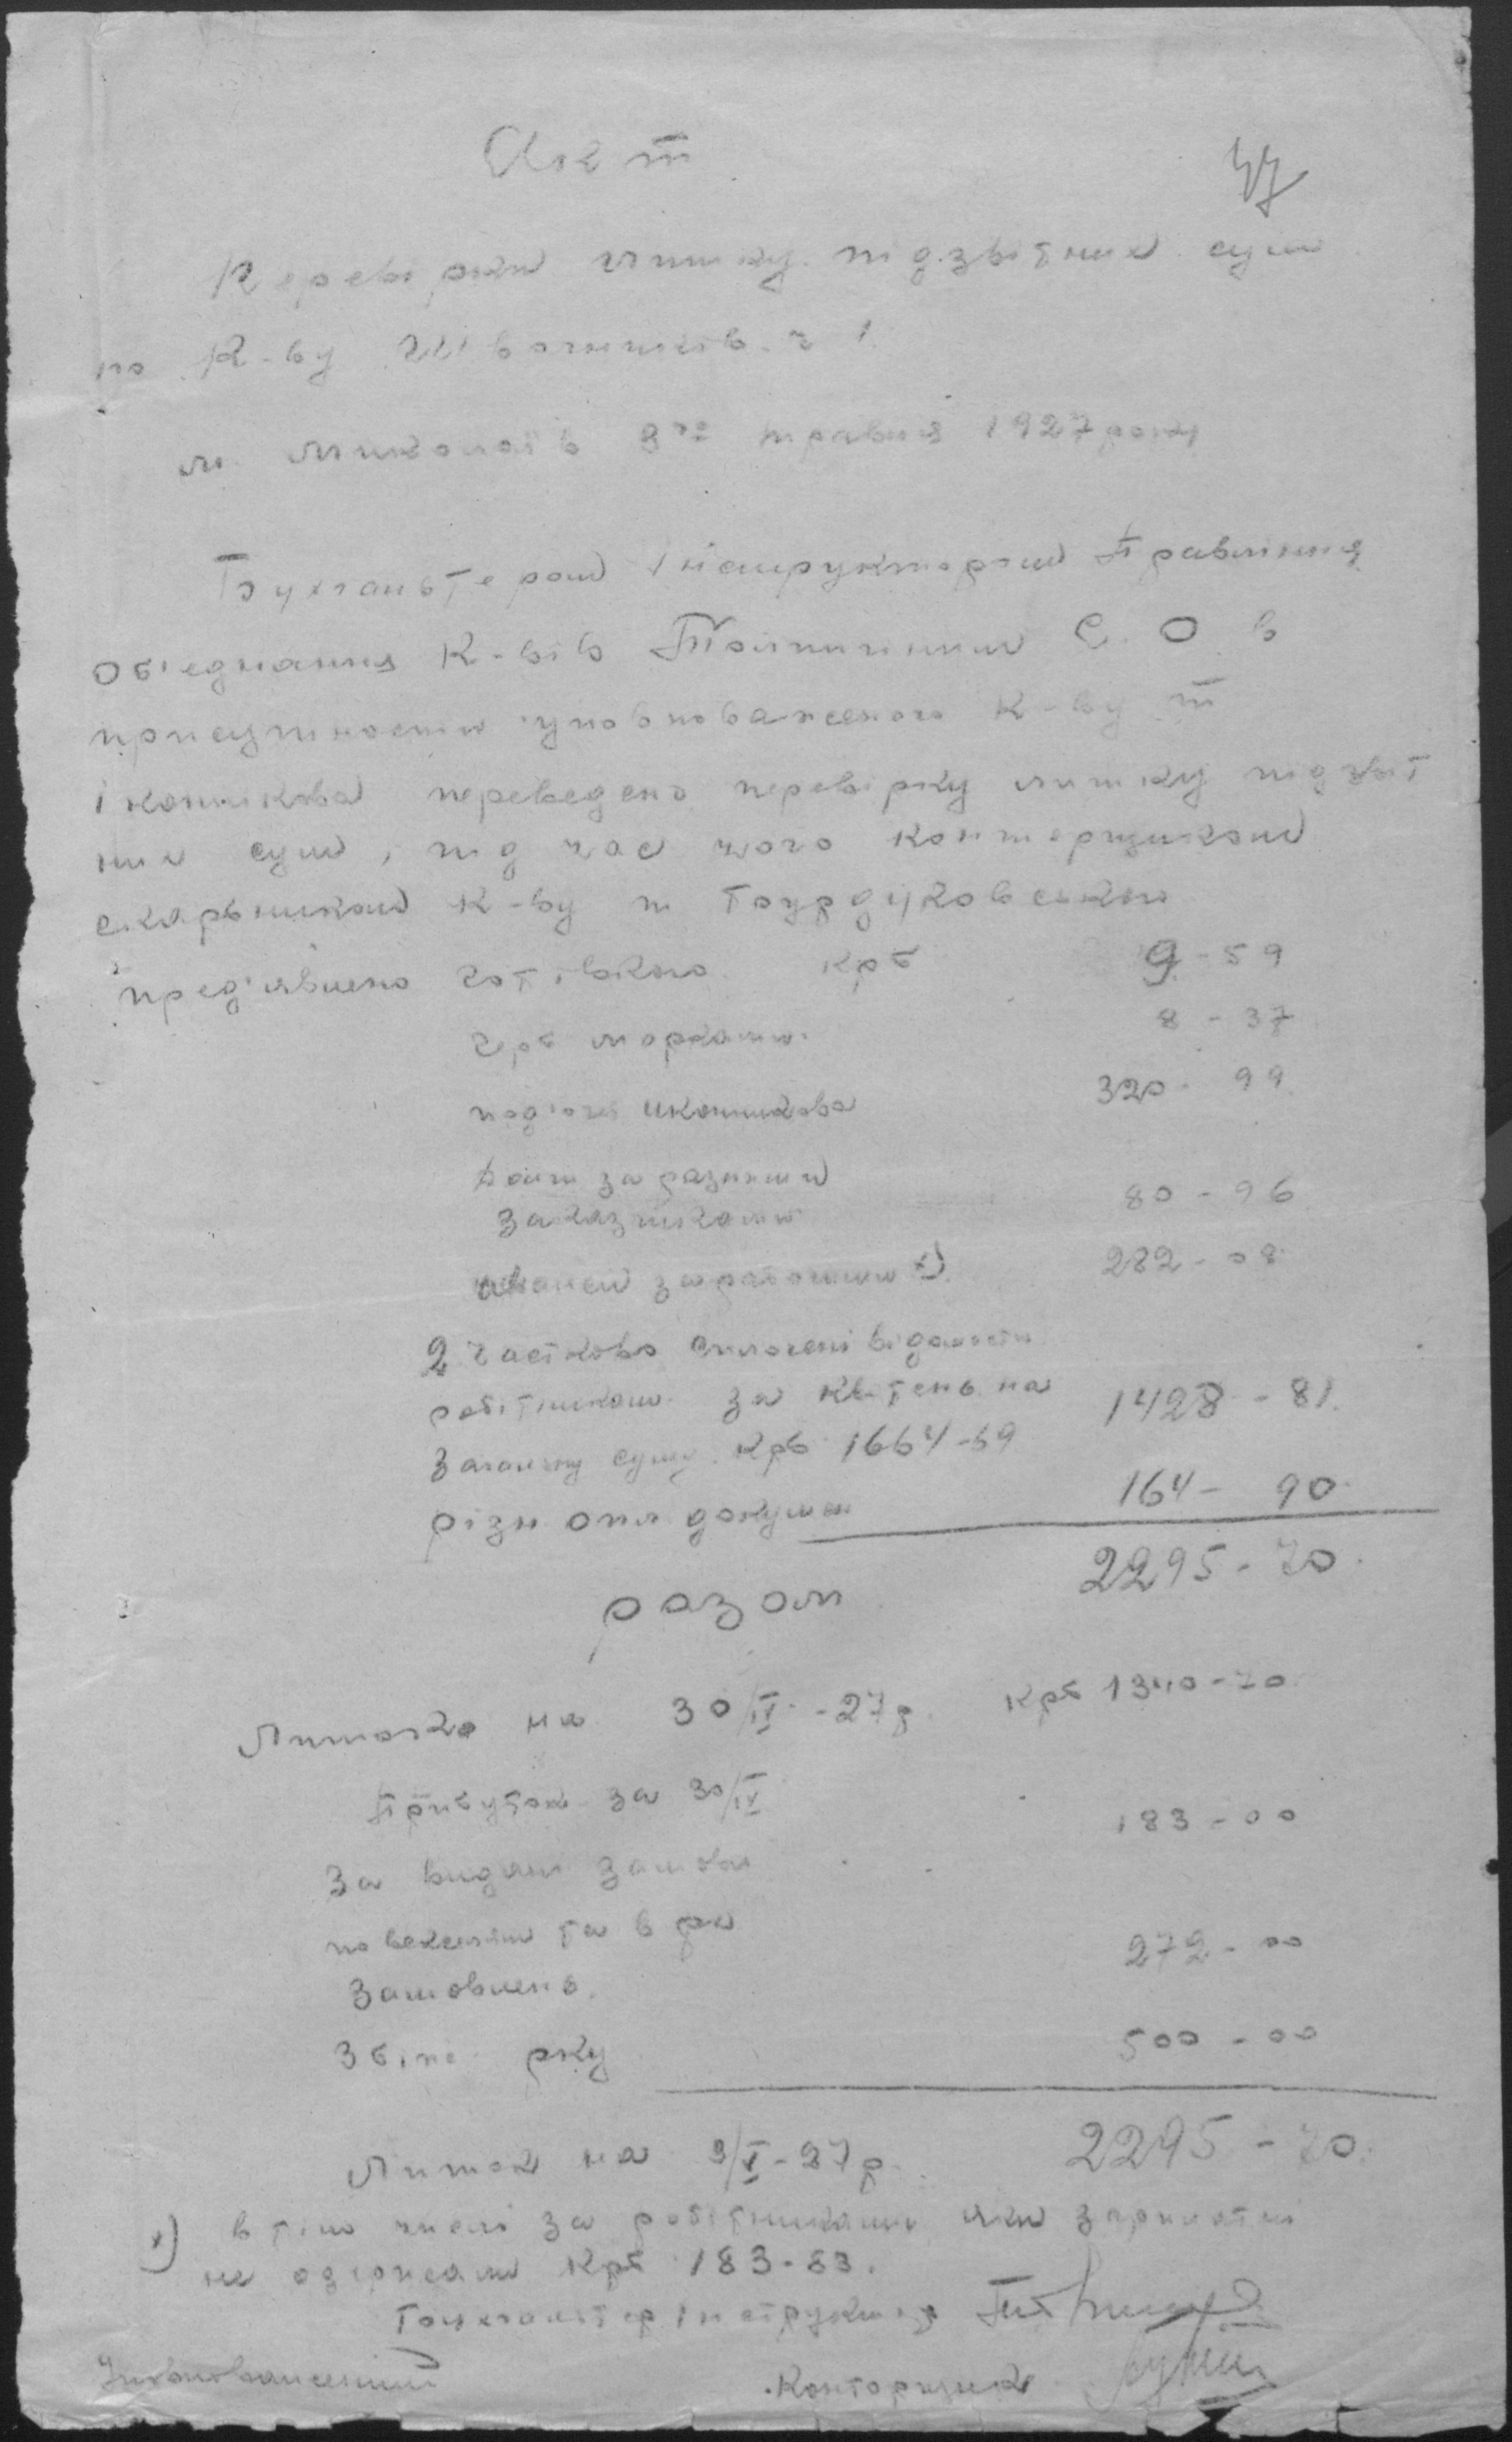 Акт
37
Перевірки лишку підзвітних сум
по К-ву Швачників ч 1.
м. Миколаїв 9го травня 1927 року
Бухгальтером Інструктором Правління
Об'єднання К-вів С. О. в
присутности уповноваженого К-ву т
Іконнікова переведено перевірку лишку підзвіт
них сум, під час чого конторщиком
скарбником К-ву т
пред'явлено готівкою крб 9-59
герб марками 8-37
под'отч Иконникова 320-99
за разними
заказчиками 80-96
аванси x) 282-08
2 частково сплочені відомости
робітникам за квітень на
загальну суму крб 1664-59 1428-81.
різн опл докумен 164-90
разом 2295-70.
Лишок на 30/IV-27р. крб 1340-70
Прибуток за 30/IV 183-00
За видані замовл
по векселям та в
замовлено. 272-00
З біж рку 500-00
Лишок на 9/V-27р. 2295-70.
x) в тім числі за робітниками яки зарплатні
не одержали крб 183-83.
Бухгальтер Інструктор
Уповноважений Конторщик